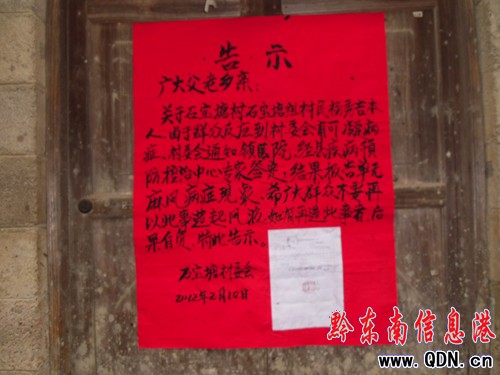 告示
广大父老乡亲：
关于石宝塘村石宝塘组村民杨声吉本
人，由于群众反应到村委会有可
症，村委会通知镇医院，经县疾病预
防控治中心专家签定，结果报告单无
麻风病症现象，希广大群众不要再
以此事造起风波，如有再造此事者，后
果自负，特此告示。
石宝塘村委会
2012年2月10日
黔东南信息港
www.QDN.cn